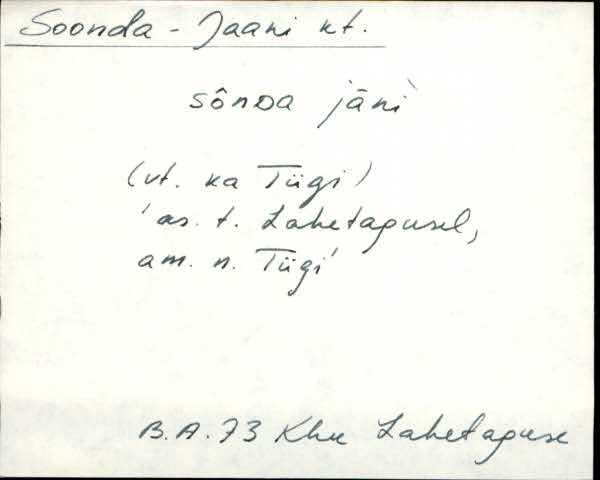 Soonda - Jaani kt.
sônDa jāni`
(vt. ka Tiigi)
'as. t. Lahetagusel,
am. n. Tiigi'
B.A. 73 Khu Lahetaguse